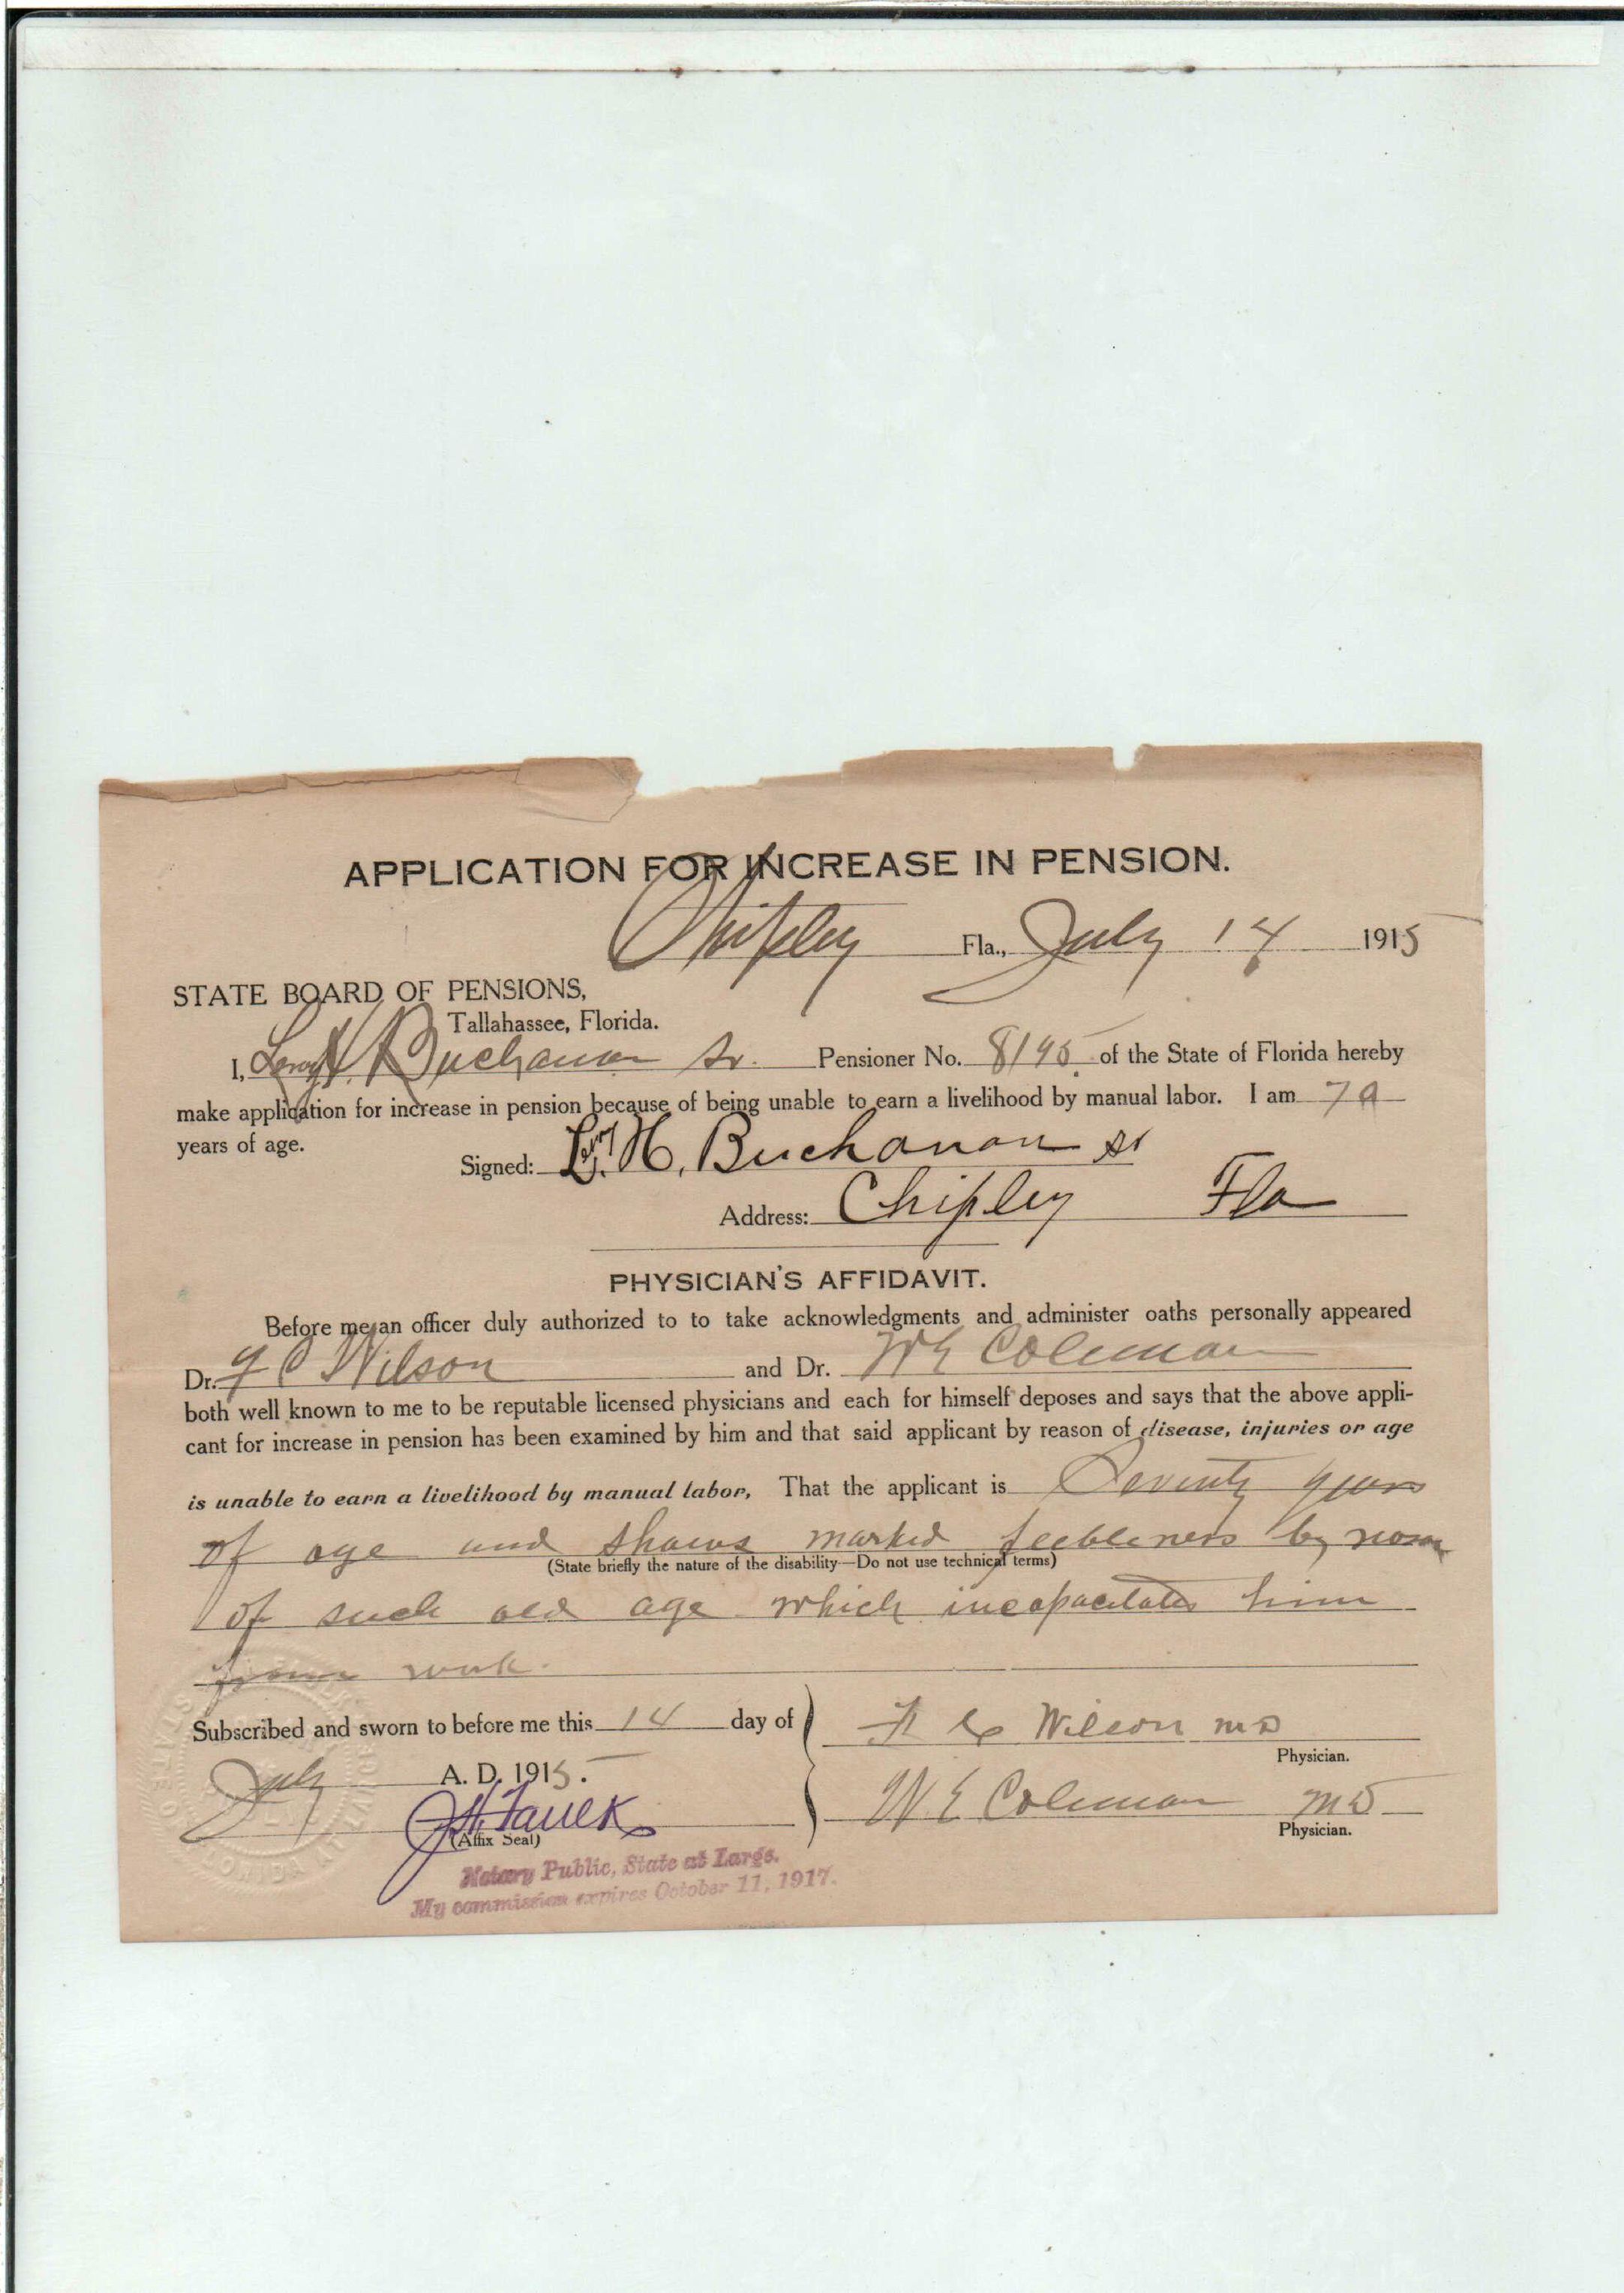 APPLICATION FOR INCREASE IN PENSION.
Chipley Fla., July 14 1915
STATE BOARD OF PENSIONS,
Tallahassee, Florida.
I, Leroy H. Buchanan Sr. Pensioner No. 8195 of the State of Florida hereby
make application for increase in pension because of being unable to earn a livelihood by manual labor. I am 70
years of age.
Signed: H. Buchanan Sr
Address: Chipley Fla
PHYSICIAN'S AFFIDAVIT.
Before me an officer duly authorized to to take acknowledgments and administer oaths personally appeared
Dr. C Wilson and Dr. W E Coleman
both well known to me to be reputable licensed physicians and each for himself deposes and says that the above appli-
cant for increase in pension has been examined by him and that said applicant by reason of disease, injuries or age
is unable to earn a livelihood by manual labor, That the applicant is Seventy years
of age and shows marked feebleness by reason
(State briefly the nature of the disability—Do not use technical terms)
of such old age which incapacitates him
from work.
Subscribed and sworn to before me this 14 day of
C Wilson MD
Physician.
July A. D. 1915.
W E Coleman MD
Physician.
J. H. Faulk
(Affix Seal)
Notary Public, State at Large.
My commission expires October 11, 1917.